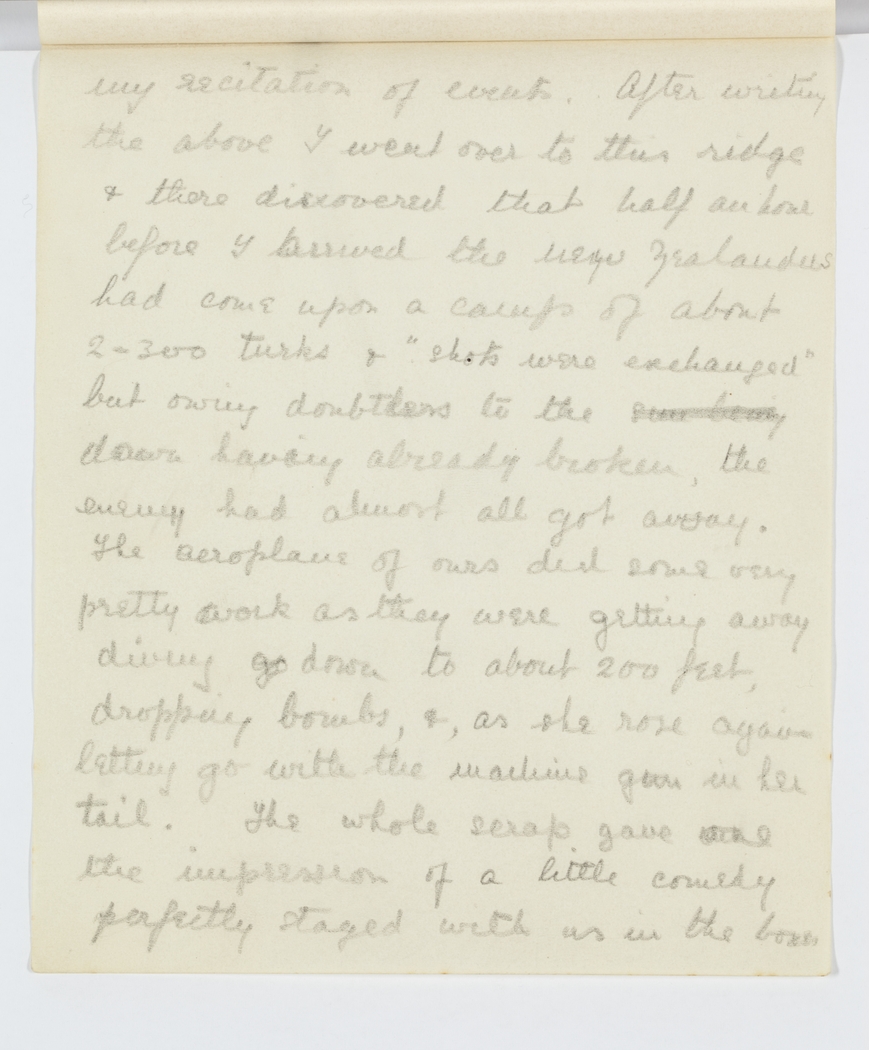 my recitation of events. After writing
the above I went over to this ridge
& there discovered that half an hour
before I arrived the new Zealanders
had come upon a camp of about
2-300 turks & "shots were exchanged"
but owing doubtless to the sun being
dawn having already broken, the
enemy had almost all got away.
The aeroplane of ours did some very
pretty work as they were getting away
diving go down to about 200 feet,
dropping bombs, &, as she rose again
letting go with the machine gun in her
tail. The whole scrap gave one
the impression of a little comedy
perfectly staged with us in the boxes